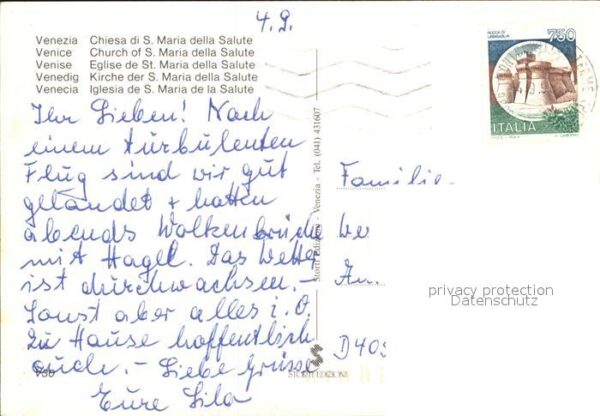 4.9.
Venezia Chiesa di S. Maria della Salute
Venice Church of S. Maria della Salute
Venise Eglise de St. Maria della Salute
Venedig Kirche der S. Maria della Salute
Venecia Iglesia de S. Maria de la Salute
Ihr Lieben! Nach
einem turbulenten
Flug sind wir gut
gelandet + hatten
abends Wolkenbrüche
mit Hagel. Das Wetter
ist durchwachsen. –
Sonst aber alles i.O.
Zu Hause hoffentlich
auch. – Liebe Grüsse
Eure
Storti Edizioni - Venezia - Tel. (041) 431607
STORTI EDIZIONI
750
ITALIA
Familie
We
An
D 40
privacy protection
Datenschutz